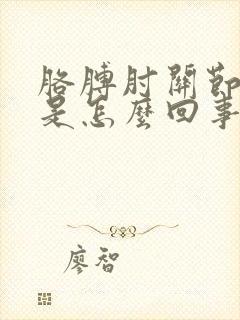 胳膊肘關節
是怎麼回事
廖智